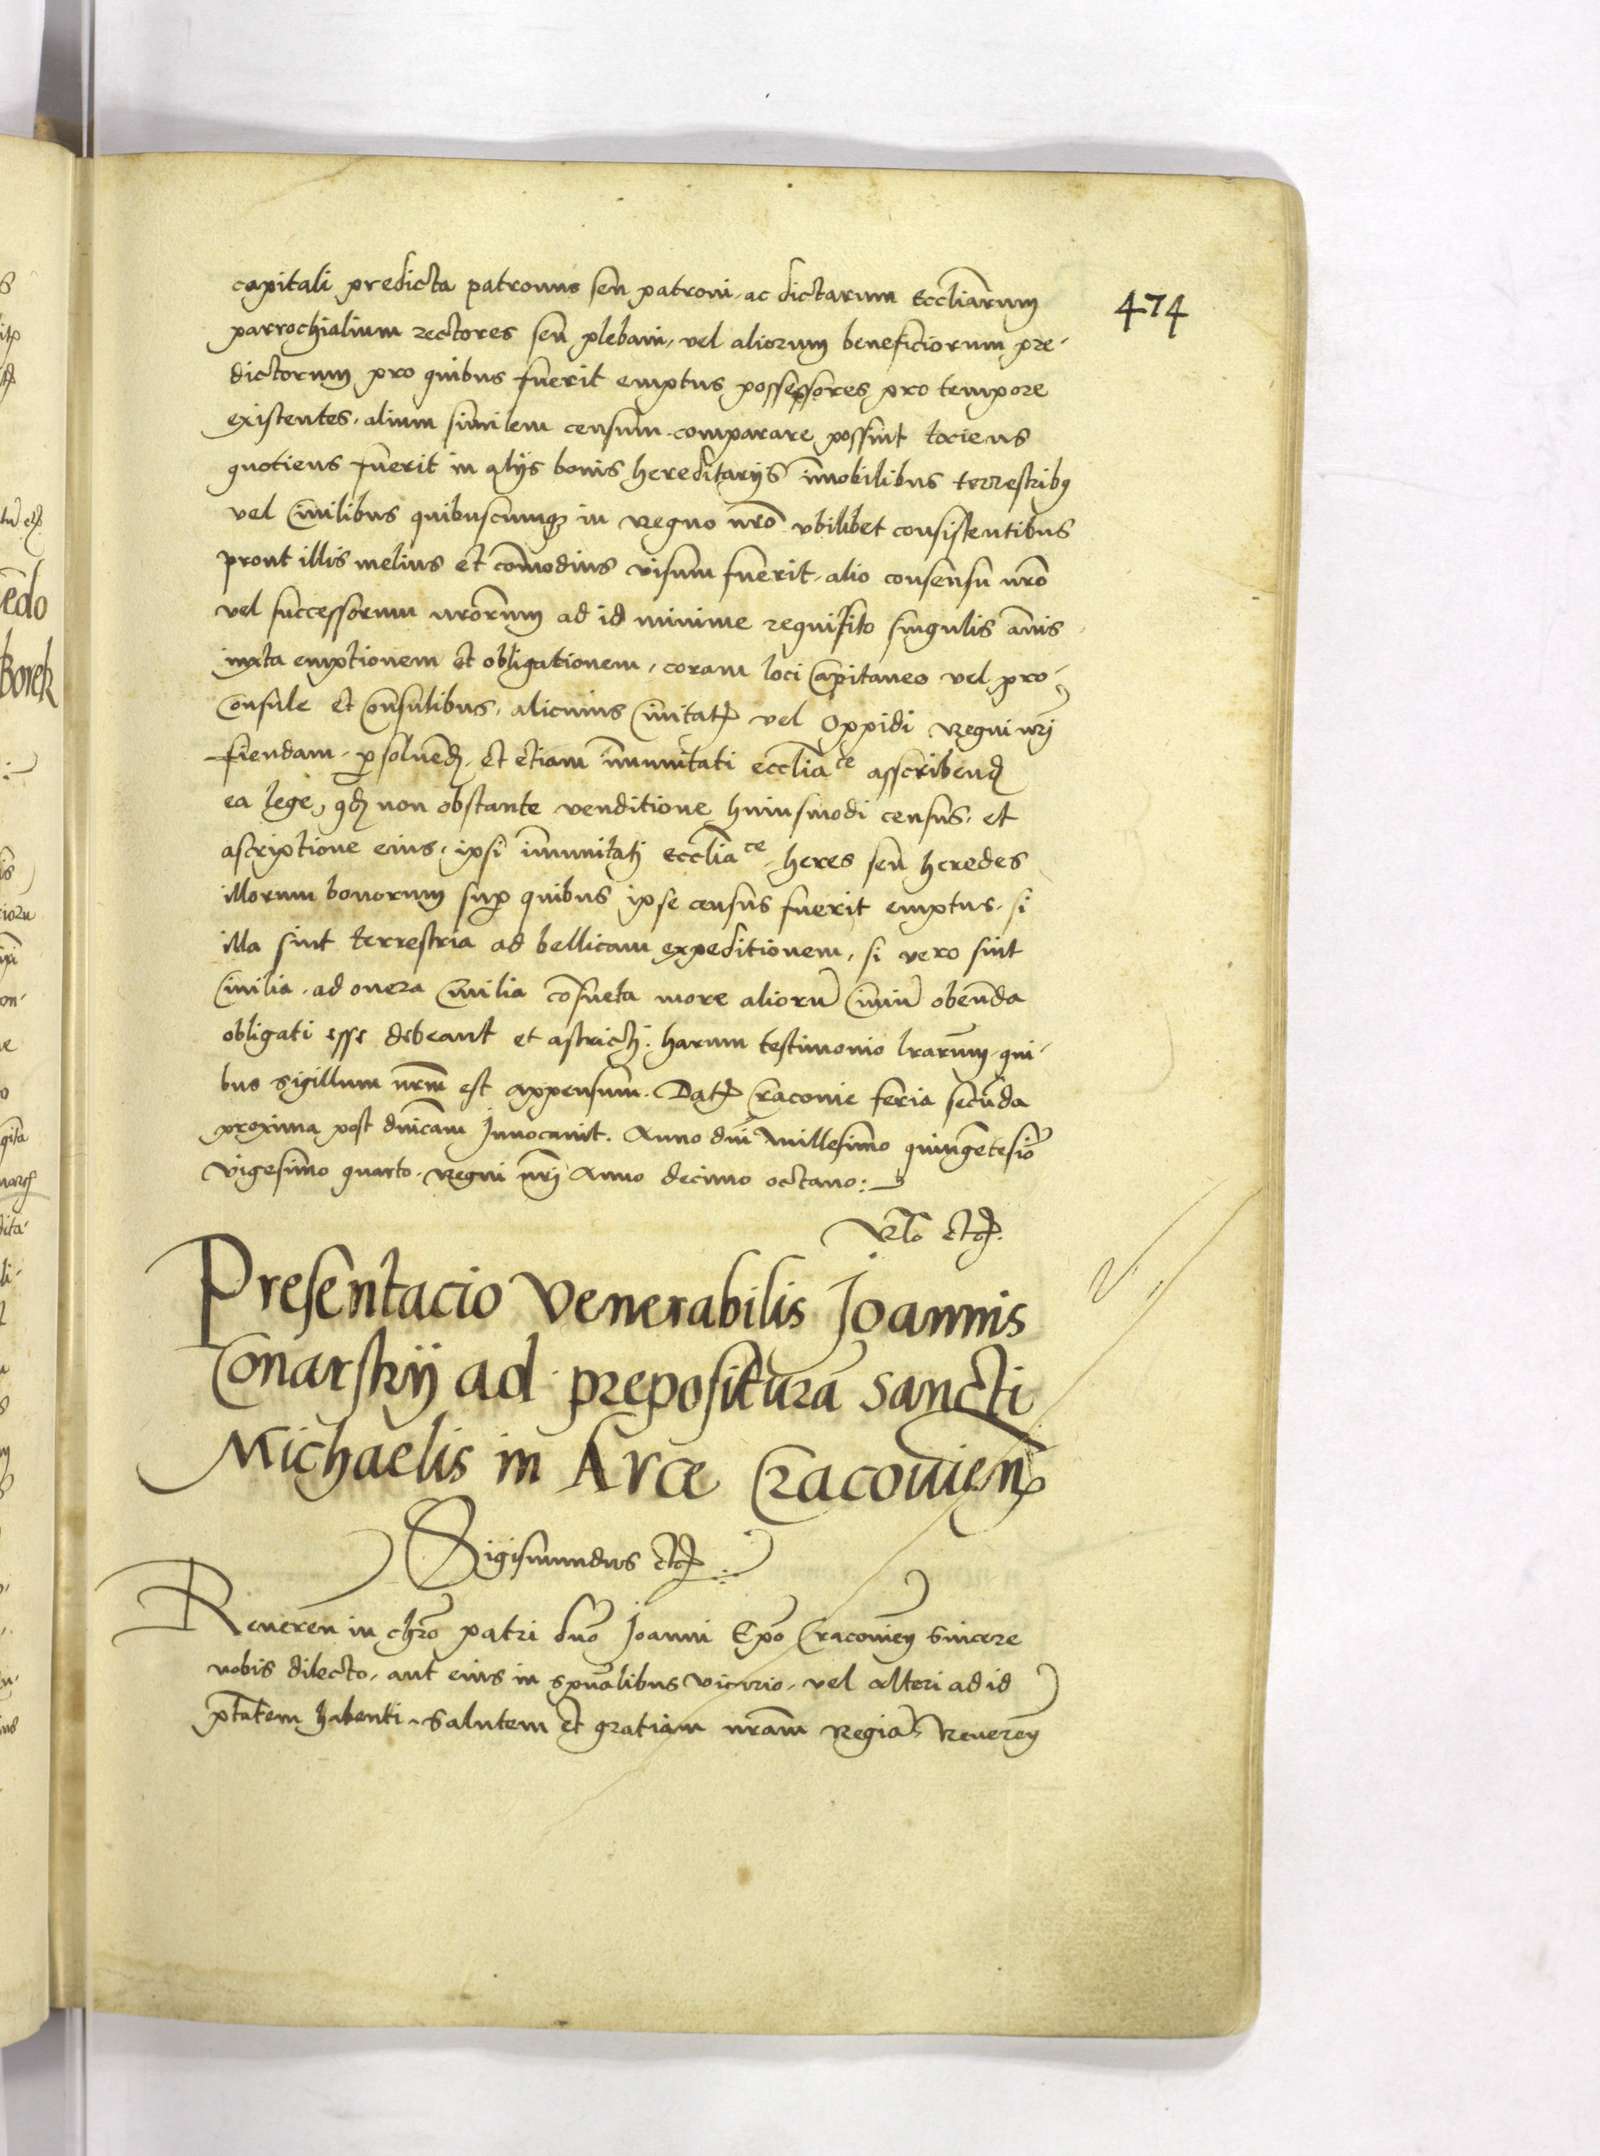 474
capitali predicta patronus seu patroni, ac dictarum Eccl̃iarum
parrochialium rectores seu plebani, vel aliorum beneficiorum pre-
dictorum pro quibus fuerit emptus possessores pro tempore
existentes, alium similem censum comparare possint tociens
quotiens fuerit in alijs bonis hereditarijs im̃obilibus terrestribꝯ
vel Ciuilibus quibuscumqꝫ in Regno nr̃o vbilibet consistentibus
prout illis melius et com̃odius visum fuerit, alio consensu nr̃o
vel successorum nr̃orum ad id minime requisito singulis annis
iuxta emptionem et obligationem, coram loci Capitaneo vel pro-
Consule et Consulibus, alicuius Ciuitatꝭ vel Oppidi Regni nr̃j
fiendam, ꝑsoluend̃, et etiam im̃unitati eccl̃iaᶜᵉ asscribend̃
ea lege, qd̃ non obstante venditione huiusmodi census, et
ascriptione eius, ipsi im̃unitatj eccl̃iaᶜᵉ, heres seu heredes
illorum bonorum suꝑ quibus ipse census fuerit emptus, si
illa sint terrestria ad bellicam expeditionem, si vero sint
Ciuilia, ad onera Ciuilia cõsueta more aliorũ Ciuiũ obeũda
obligati esse debeant et astrictj. harum testimonio lr̃arum, qui-
bus sigillum nr̃m est appensum. Datꝭ Cracouie feria secũda
proxima post dñicam Inuocauit. Anno dñi Millesimo quingẽtesiõ
vigesimo quarto, Regni nr̃j Anno decimo octauo:
Rl̃o etcꝭ.
Presentacio Venerabilis Joannis
Conarskij ad preposituram̃ sancti
Michaelis in Arce Cracouien̄
Sigismundus etcꝭ
Reueren̄ in chr̃o patri dño Joanni Ep̃o Cracouien̄ Sincere
nobis dilecto, aut eius in spũalibus vicario, vel alteri ad id
ptãtem habenti, Salutem et gratiam nr̃am Regiã. Reueren̄